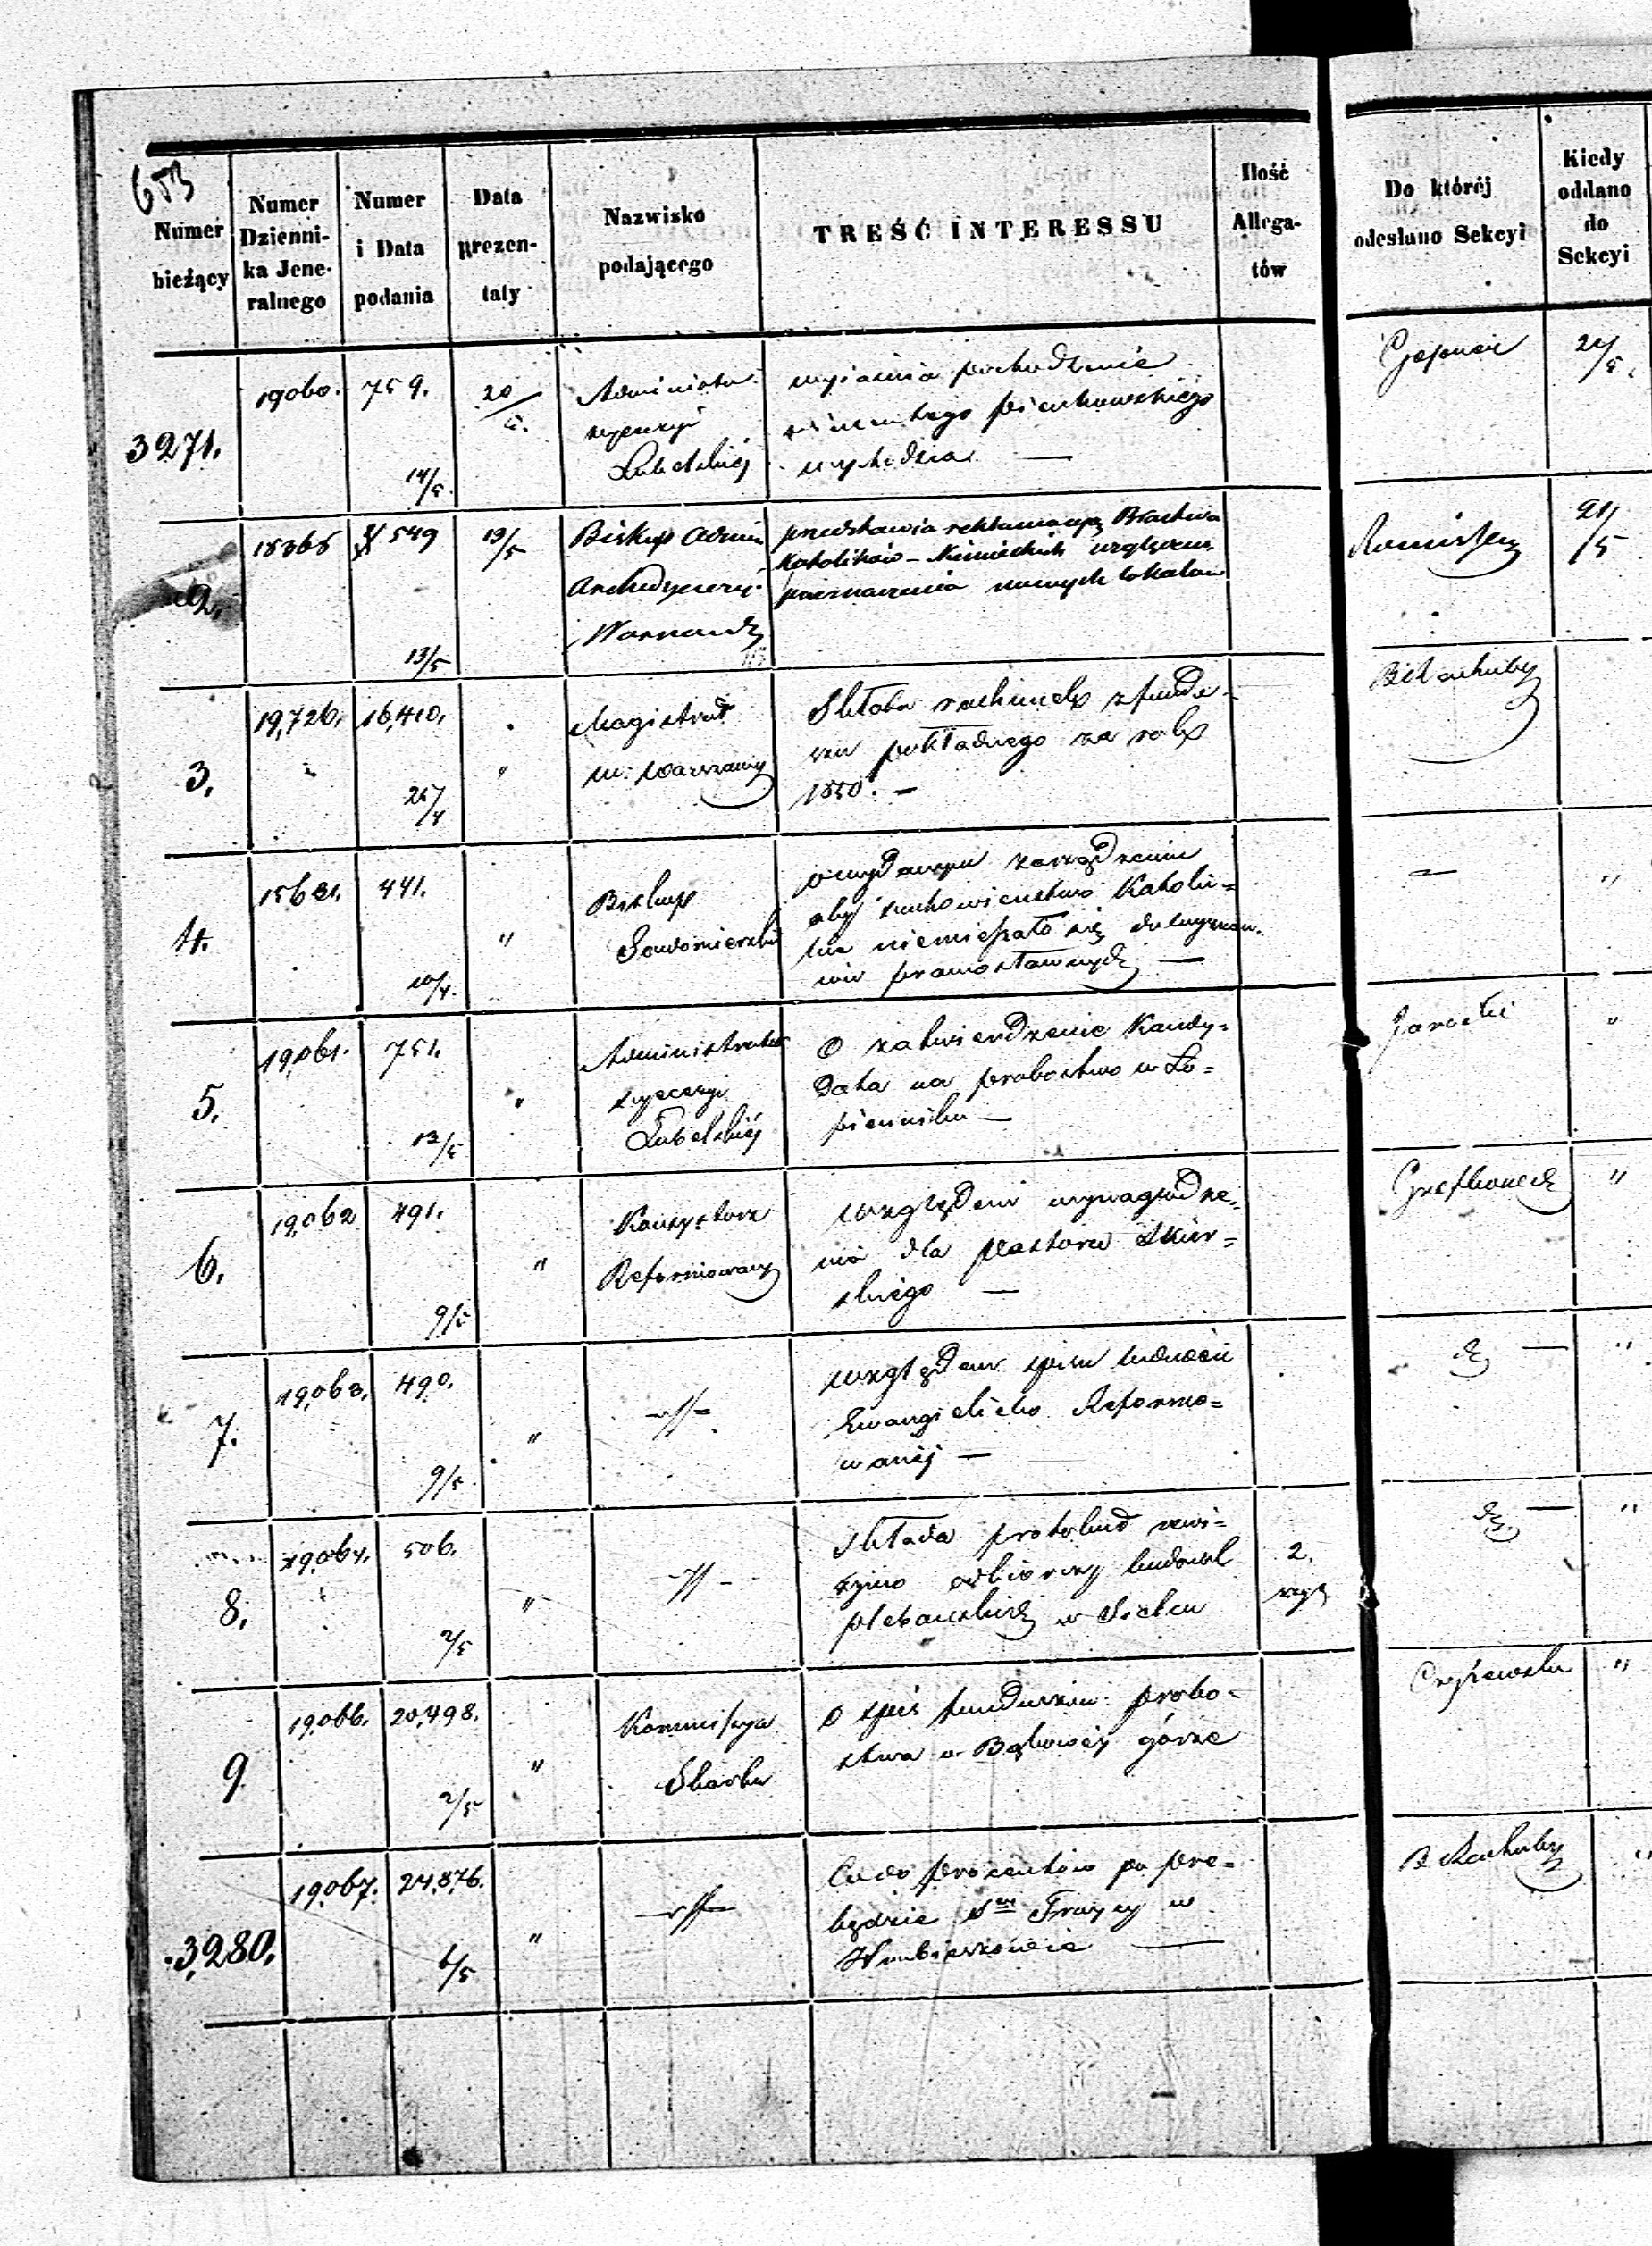 653
Numer bieżący
Numer Dziennika Jeneralnego
Numer i Data podania
Data prezentaty
Nazwisko podającego
TREŚĆ INTERESSU
Ilość Allegatów
Do któréj odesłano Sekcyi
Kiedy oddano do Sekcyi
3271.
19060.
759.
14/5.
20/5.
Administr.
dyecezyi
Lubelskiéj
wyjaśnia pochodzenie
wychodźca —
21/5.
2.
549
13/5
19/5
Biskup Admin
Archidyecezyi
Warszaws
przedstawia reklamacyą Bractwa
Katolików-Niemieckich względem
przeznaczenia nowych lokalów
21/5
3.
19,726.
16,410.
"
Magistrat
m: Warszawy
Składa rachunek z fundu-
szu pokładnego za rok
1850. —
B Rachuby
4.
441.
10/4.
"
Biskup
Sandomierski
o wydanym zarządzeniu
aby duchowieństwo Katolic=
kie niemięszało się do wyznaw-
ców prawosławnych —
—
"
5.
19,061.
751.
13/5
"
Administrator
dyecezyi
Lubelskiéj
O zatwierdzenie Kandy=
data na probostwo w Ło=
pienniku —
Jarocki
"
6.
19,062
491.
9/5
"
Konsystorz
Reformowany
względem wynagrodze-
nia dla pastora Skier=
skiego —
"
7.
19,063.
490.
9/5
"
-//-
względem spisu ludności
Ewangielicko Reformo=
wanéj —
—
"
8.
19,064.
506.
2/5
"
-//-
Składa protokuł rewi=
zyjno odbiorczy budowl
plebańskich w Sielcu
2.
—
"
9
19,066.
20,498.
2/5
"
Kommissya
Skarbu
O spis funduszów probo-
stwa w Bąkowéj górze
"
3,280.
19,067.
24,876.
6/5
"
-//-
Co do procentów po pre=
bendzie Stéj Trójcy w
Hrubieszowie —
B Rachuby
"